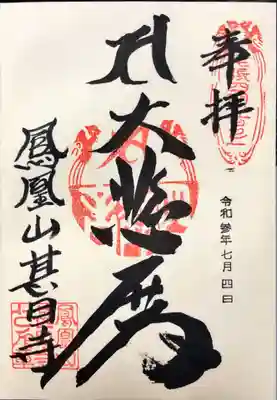 奉拝
令和參年七月四日
大悲殿
鳳凰山甚目寺